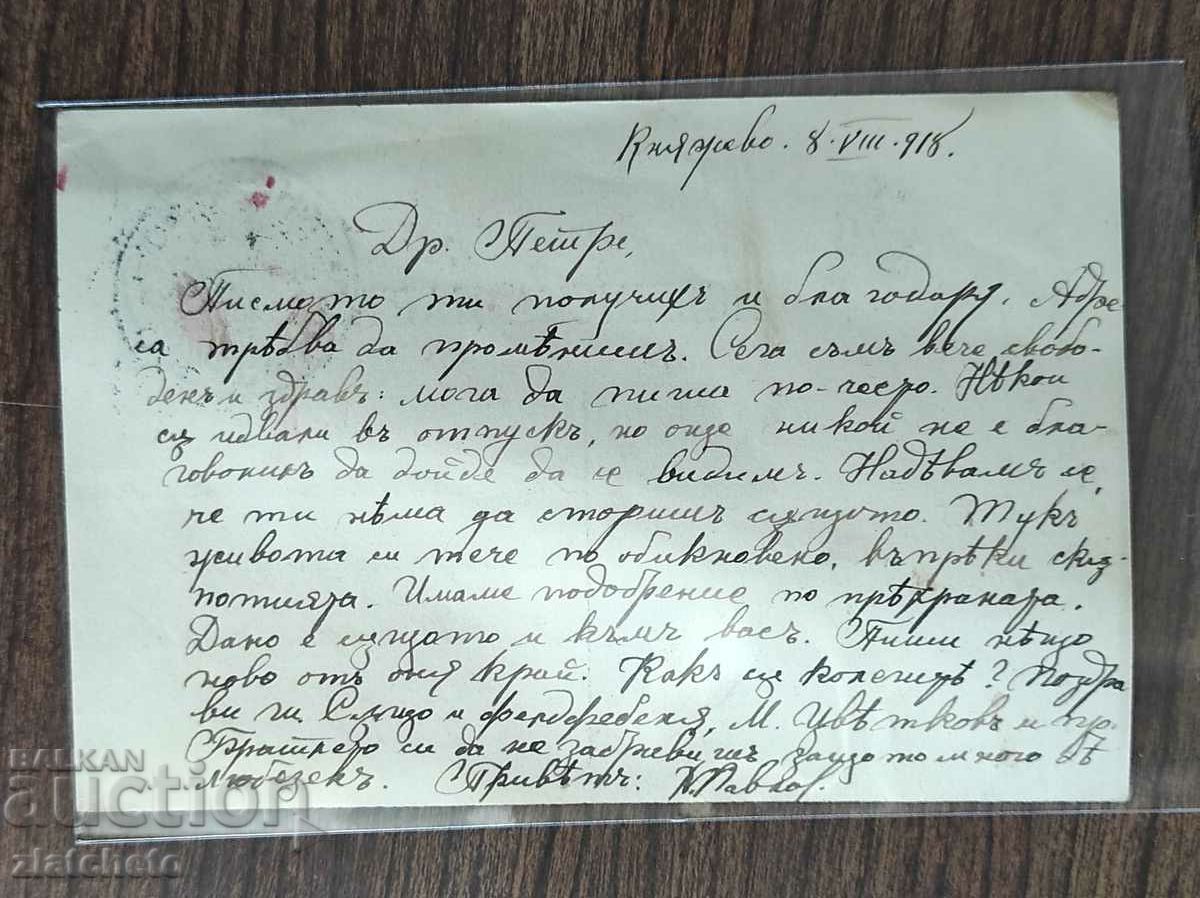 Княжево. 8.VIII.918.
Др. Петре,
Писмото ти получихъ и благодаря. Адре
са трѣбва да промѣнишъ. Сега съмъ вече свобо-
денъ и здравъ: мога да пиша по-често. Нѣкои
сѫ идвали въ отпускъ, но още никой не е бла-
говолилъ да дойде да се видимъ. Надѣвамъ се,
че ти нѣма да сторишъ сѫщото. Тукъ
живота си тече по обикновено, въпрѣки скѫ-
потията. Имаме подобрение по прѣхраната.
Дано е сѫщото и къмъ васъ. Пиши нѣщо
ново отъ оня край. Какъ сѫ колегитѣ? Поздра
ви ги. Сѫщо и фелдфебеля, М. Цвѣтковъ и пр.
Братчето си да не забравишъ защото много
любезенъ. Привѣтъ: Павлов.
BALKAN
auction
zlatcheto